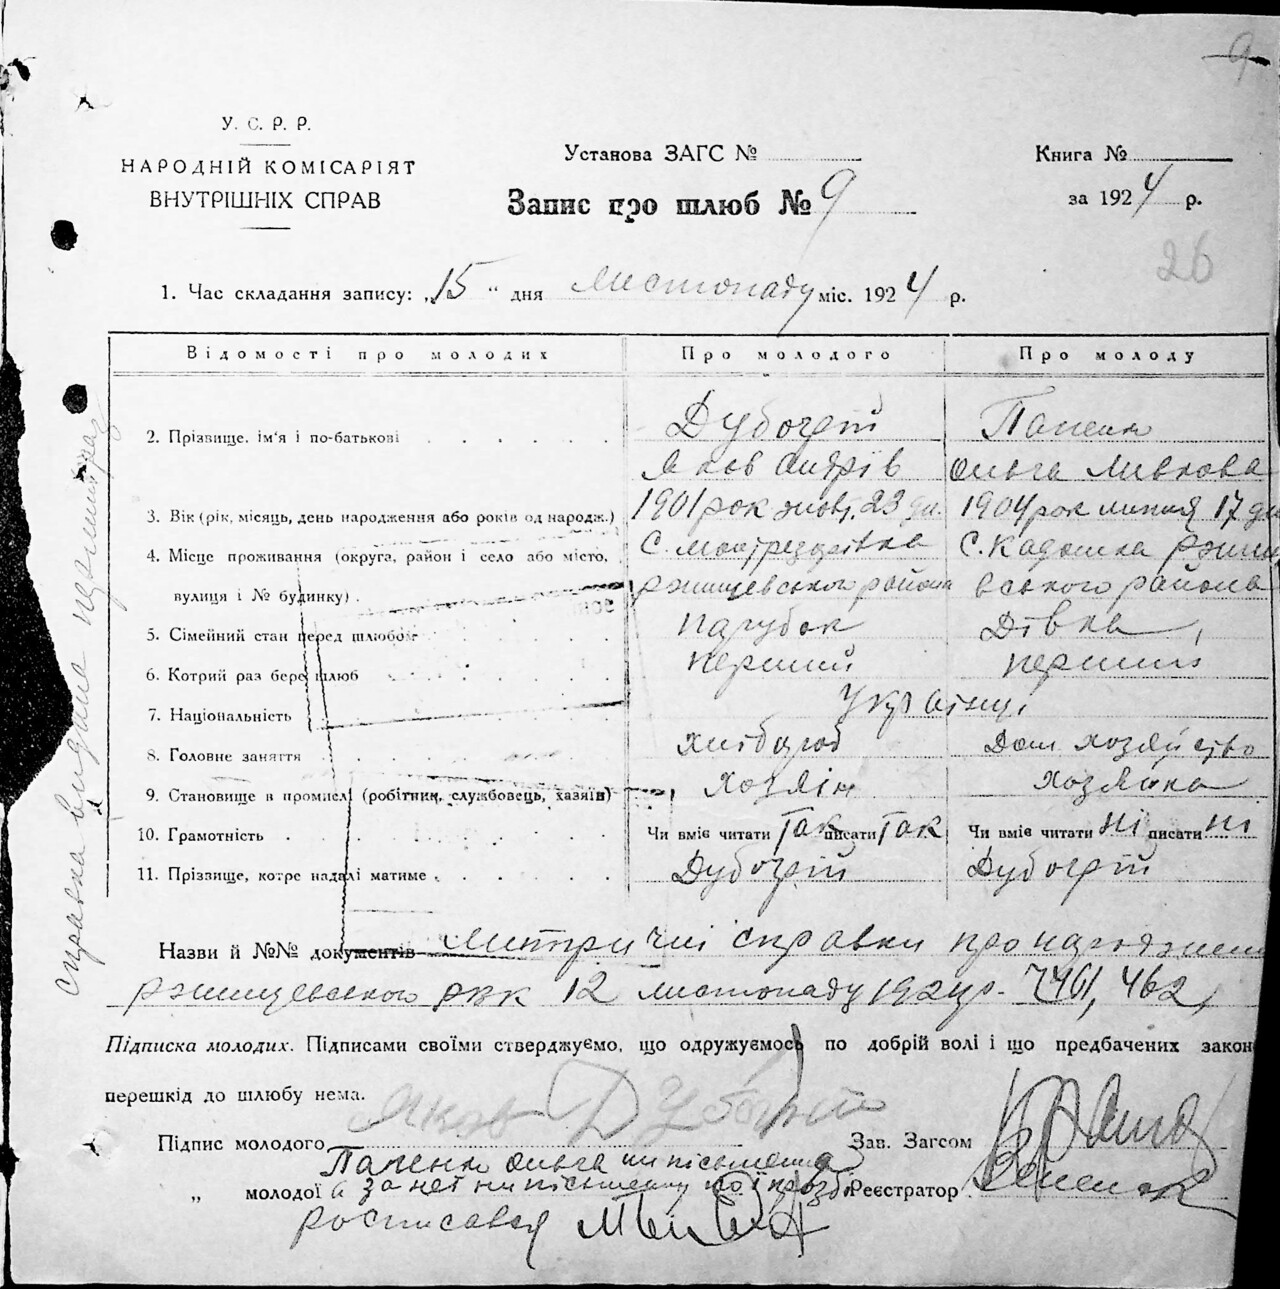 9
У. С. Р. Р.
НАРОДНІЙ КОМІСАРІЯТ
ВНУТРІШНІХ СПРАВ
Установа ЗАГС №
Книга №
Запис про шлюб № 9
за 1924 р.
26
1. Час складання запису: „15“ дня Листопаду міс. 1924 р.
Відомості про молодих Про молодого Про молоду
2. Прізвище, ім'я і по-батькові Дубогрій Папенко
Яков Андрїв Ольга Ливкова
3. Вік (рік, місяць, день народження або років од народж.) 1901 рок жовт. 23 дн. 1904 рок липня 17 дн
4. Місце проживання (округа, район і село або місто, С. С. Кадомка Ржищ
вулиця і № будинку) Ржищевського района вського района
5. Сімейний стан перед шлюбом Парубок Дівка
6. Котрий раз бере шлюб перший перший
7. Національність Українці
8. Головне заняття Хлібороб Дом хозяйство
9. Становище в промислі (робітник, службовець, хазяїн) Хозяін Хозяйка
10. Грамотність Чи вміє читати Так писати Так Чи вміє читати Ні писати Ні
11. Прізвище, котре надалі матиме Дубогрій Дубогрій
Назви й №№ документів Митричні справки про народженн
Ржищевського РВК 12 листопаду 1924 р. 461, 462,
Підписка молодих. Підписами своїми стверджуємо, що одружуємось по добрій волі і що предбачених закон
перешкід до шлюбу нема.
Підпис молодого Яков Дубогрій Зав. Загсом
Папенко Ольга ни письменна
„ молодої а за неї ни письменну по її прозбі Реєстратор
росписався
Справка видана